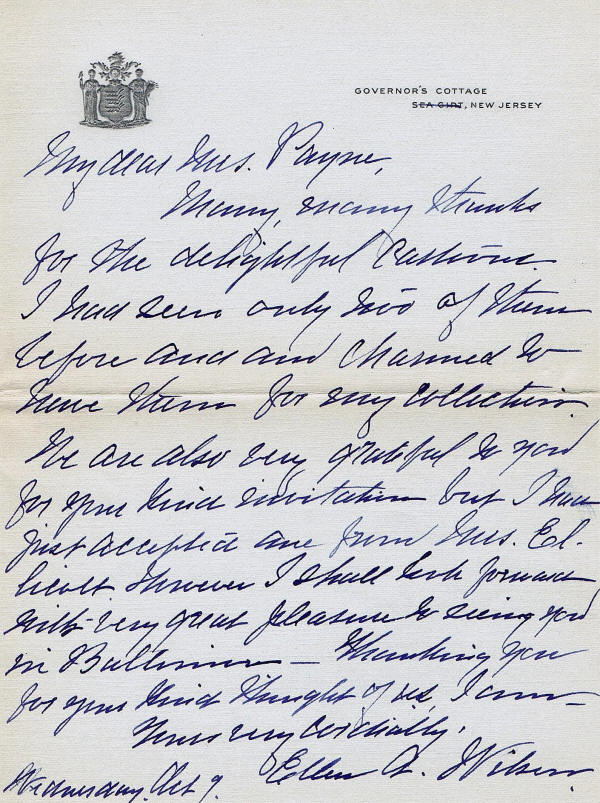 GOVERNOR'S COTTAGE
SEA GIRT, NEW JERSEY
My dear Mrs. Payne,
Many, many thanks
for the delightful cartoons.
I had seen only two of them
before and am charmed to
have them for my collection.
We are also very grateful to you
for your kind invitation but I have
just accepted one from Mrs. El-
licott. However I shall look forward
with very great pleasure to seeing you
in Baltimore — Thanking you
for your kind thought of us, I am —
Yours very cordially,
Ellen A. Wilson.
Wednesday, Oct 9.